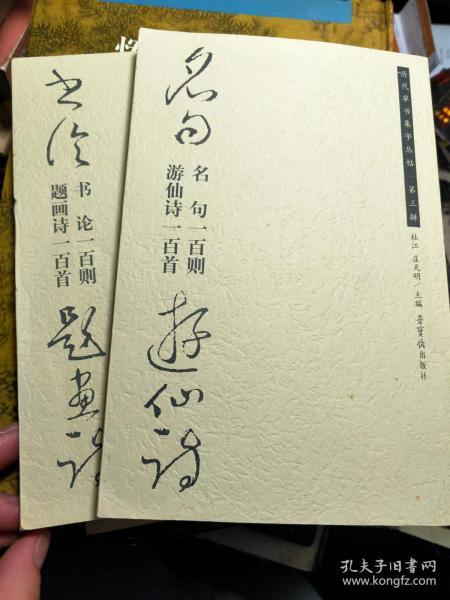 历代草书集字丛帖·第三辑
杜江 庄天明/主编 荣宝斋出版社
名句
名句一百则
游仙诗一百首
遊仙诗
书论
书论一百则
题画诗一百首
题画诗
孔夫子旧书网
www.kongfz.com